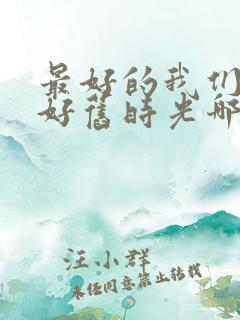 最好的我们
好旧时光哪
汪小群
未经同意禁止转载